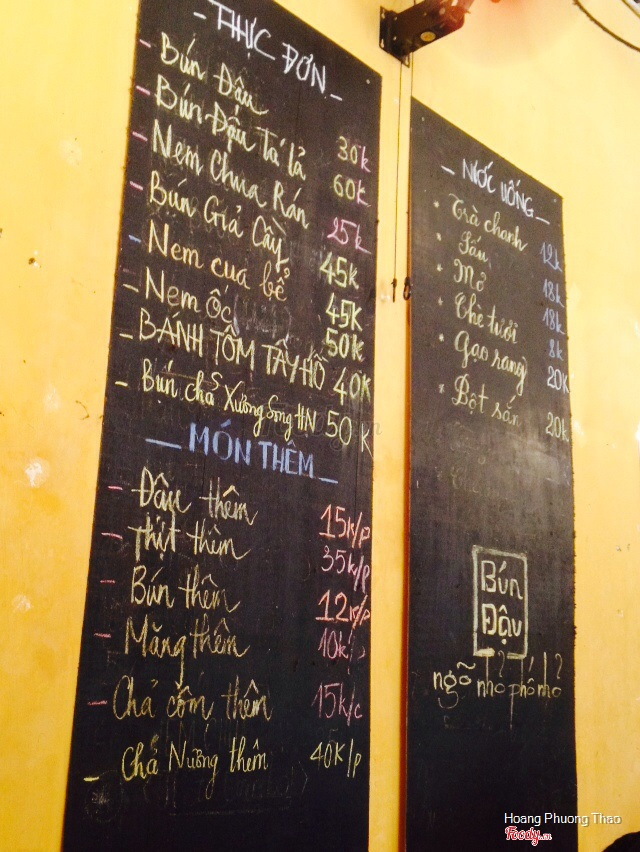 - THỰC ĐƠN -
- Bún Đậu 30k
- Bún Đậu Tá lả 60k
- Nem Chua Rán 25k
- Bún Giả Cầy 45k
- Nem cua bể 45k
- Nem Ốc 50k
- BÁNH TÔM TÂY HỒ 40K
- Bún chả Xương Sông HN 50K
- MÓN THÊM -
- Đậu thêm 15k/p
- thịt thêm 35k/p
- Bún thêm 12k/p
- Măng thêm 10k/p
- Chả cốm thêm 15k/c
- Chả Nướng thêm 40K/p
- NƯỚC UỐNG -
* Trà chanh 12k
* Sấu 18k
* Mơ 18k
* Chè tươi 8k
* Gạo rang 20K
* Bột sắn 20k
Bún
Đậu
ngõ nhỏ phố nhỏ
Hoang Phuong Thao
Foody.vn